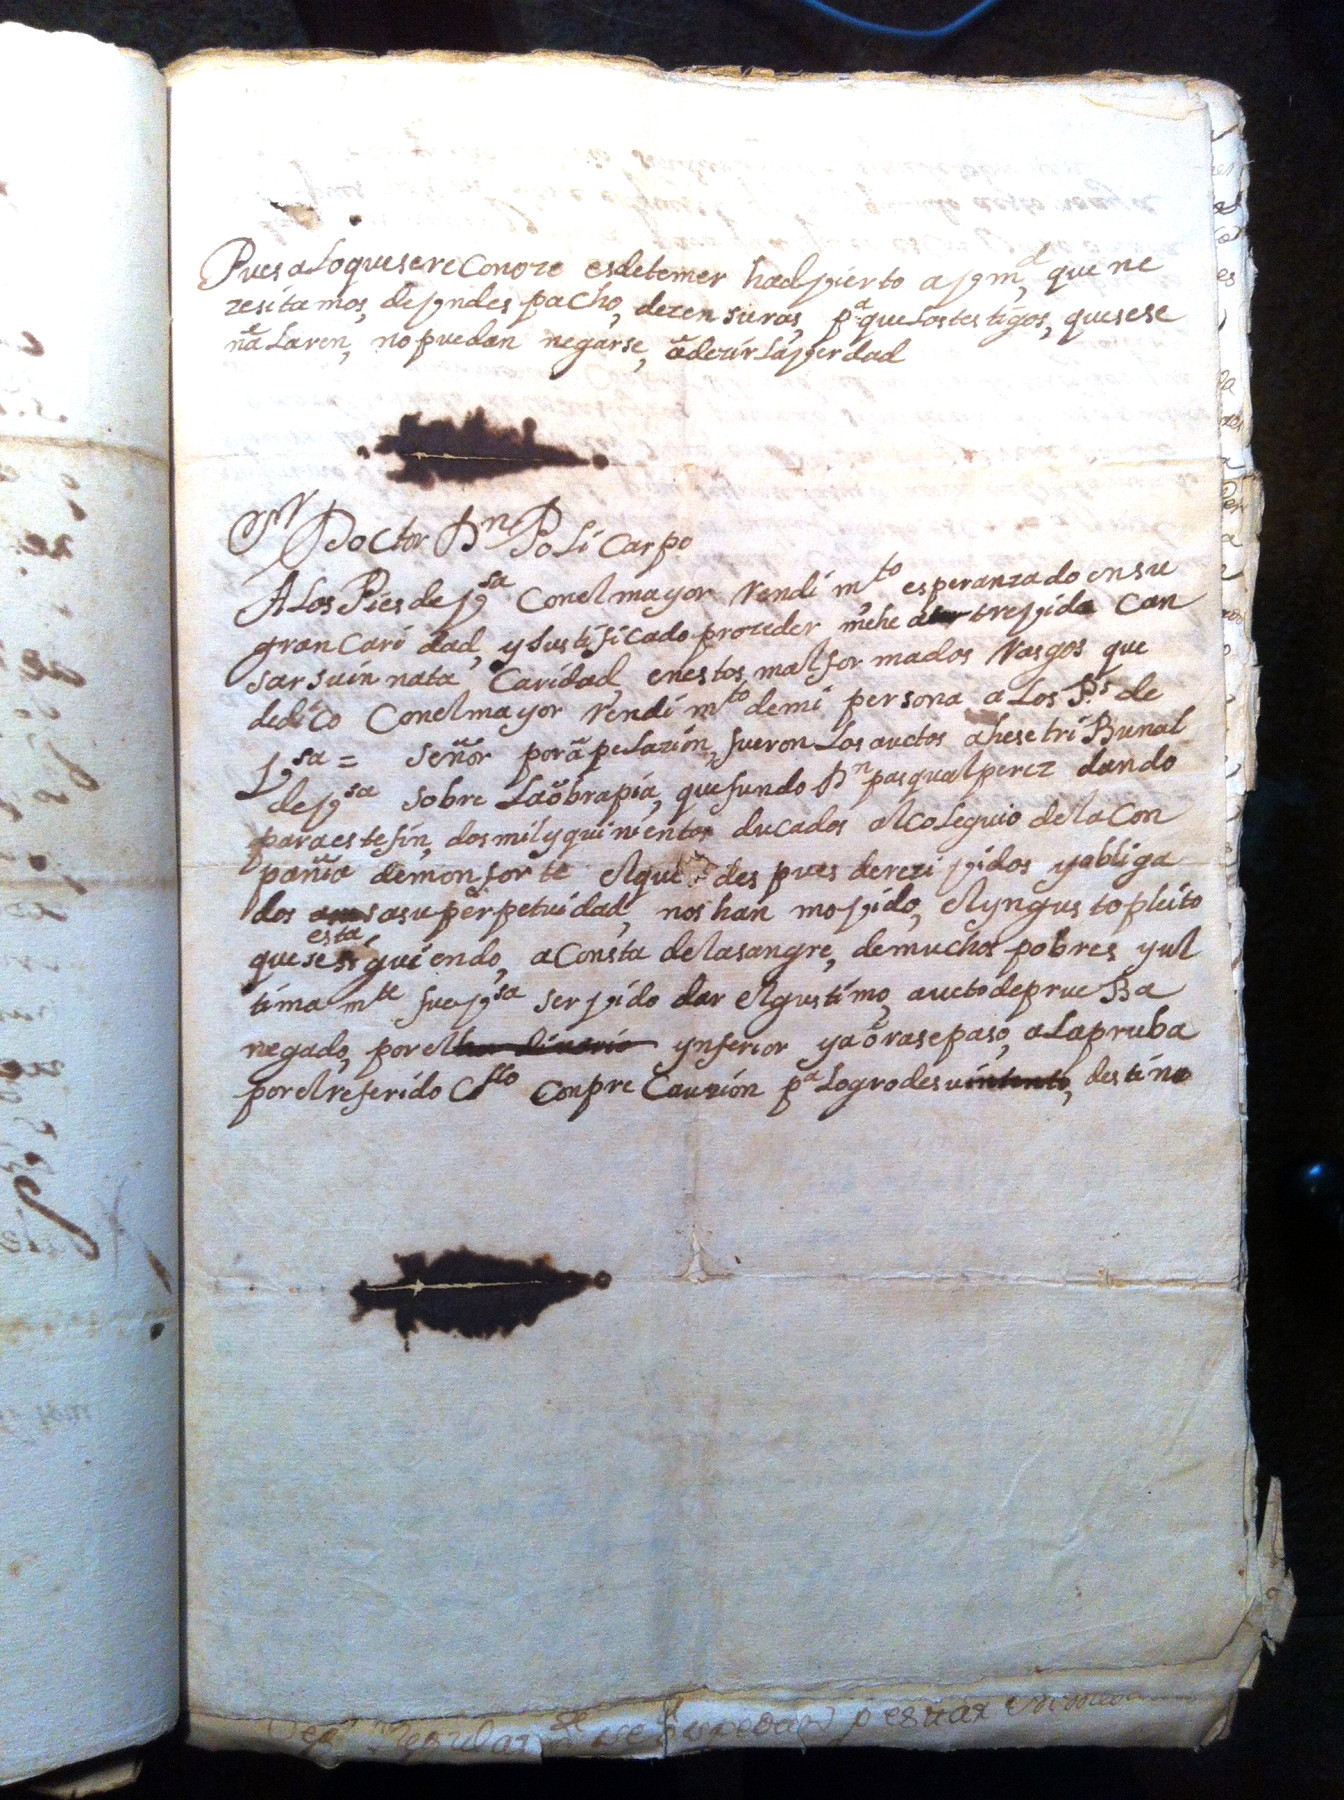 Pues aloquesereconoze esdetemer hadvierto a vmd, que ne
zesitamos, de yndespacho, dezensuras, pa que los testigos, quesese
ñalaren, no puedan negarse, adezir la verdad
Sr Doctor Dn Policarpo
A los Pies de vsa Conelmayor Rendimto esperanzado en su
gran Caridad, y Justificado prozeder mehe atrevido Can
sar su in nata Caridad, enestos mal formados Rasgos que
dedico Conelmayor Rendimto demi persona a Los Ps de
Vsa = Señor por apelazion, fueron Los auctos a hese triBunal
de vsa sobre La obrapia, que fundo Dn pasqual perez dando
para este fin, dos mil y quinientos ducados al coleguio de la Con
pañia demonforte el que despues derezividos y abliga
dos asu perpetuidad, nos han movido, el yngusto pleito
que se esta siguiendo, a Consta de la sangre, de muchos pobres y ul
timamte fue vsa servido dar el gustimo, aucto de prueBa
negado, por el ynferior ya oras e paso, a la pruba
por el referido Collo Conpre Cauzion pa Logro de su destino